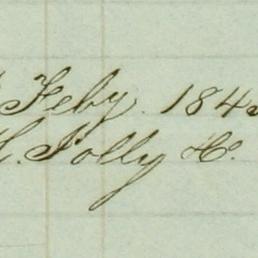 Feby. 184
H. Jolly &c.